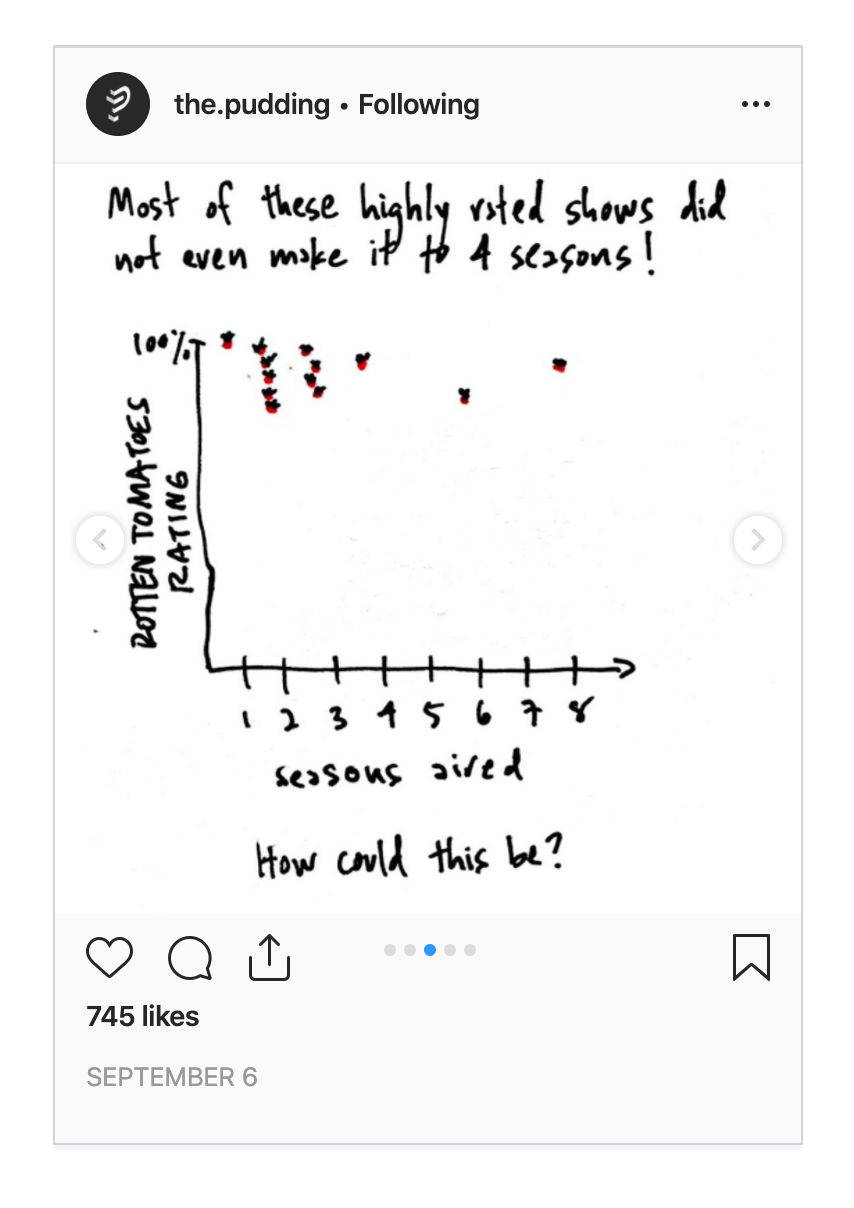 the.pudding • Following
Most of these highly rated shows did
not even make it to 4 seasons!
100%
ROTTEN TOMATOES
RATING
1 2 3 4 5 6 7 8
seasons aired
How could this be?
745 likes
SEPTEMBER 6